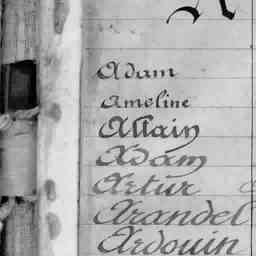 Adam
Ameline
Allain
Adam
Artur
Arandel
Ardouin